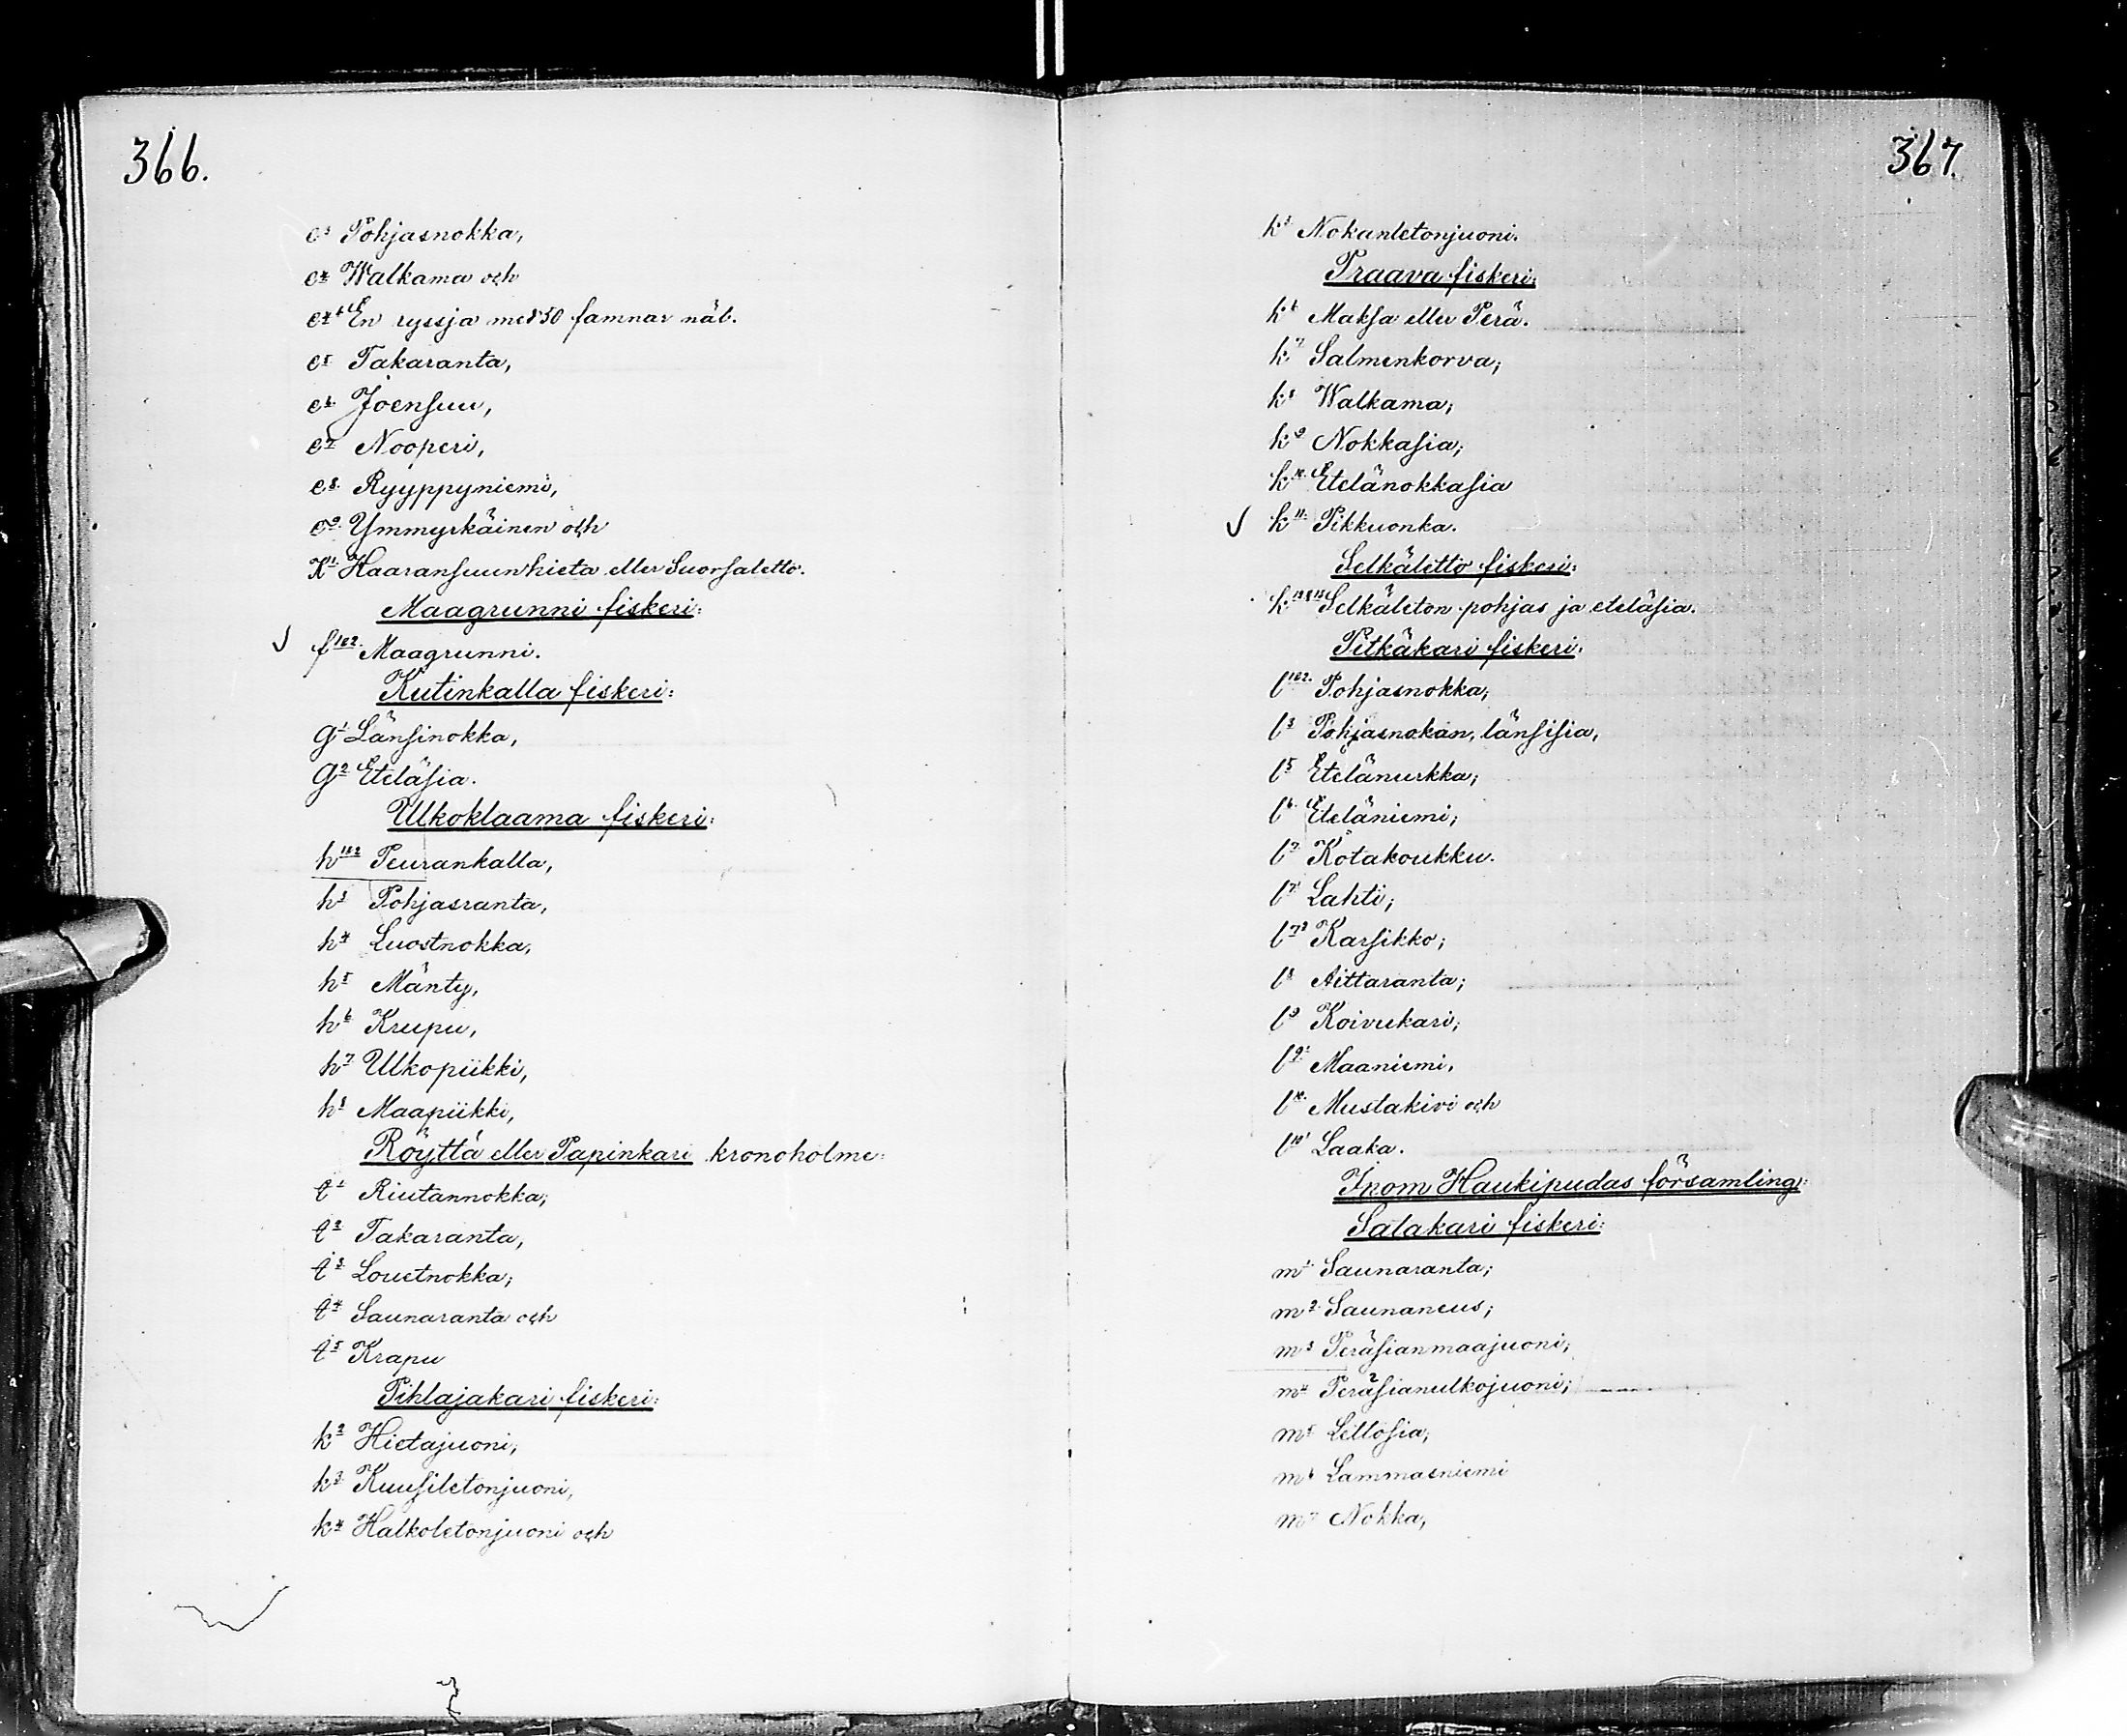 366.
e3 Pohjasnokka,
e4 Walkama och
e4 1 En ryssja med 50 famnar nät.
e5 Takaranta,
e6 Joensuu,
e7 Nooperi,
e8. Ryyppyniemi,
e9. Ymmyrkäinen och
K11. Haaransuunhieta eller Suorsaletto.
Maagrunni fiskeri:
f1&2. Maagrunni.
Kutinkalla fiskeri:
g1 Länsinokka,
g2 Eteläsia.
Ulkoklaama fiskeri:
h1&2 Peurankalla,
h3 Pohjasranta,
h4 Luostnokka,
h5 Mänty,
h6 Krupu,
h7 Ulkopiikki,
h8 Maapiikki,
Röyttä eller Papinkari kronoholme:
i1 Riutannokka;
i2 Takaranta,
i3 Louetnokka;
i4 Saunaranta och
i5 Krapu
Pihlajakari fiskeri:
k2 Hietajuoni;
k3 Kuusiletonjuoni,
k4 Halkoletonjuoni och
367.
k5 Nokanletonjuoni.
Praava fiskeri:
k6 Maksa eller Perä.
k7 Salmenkorva;
k8 Walkama;
k9 Nokkasia;
k10. Etelänokkasia
k11. Pikkuonka.
Selkäletto fiskeri:
k12&13 Selkäleton pohjas ja eteläsia.
Pitkäkari fiskeri:
l1&2. Pohjasnokka;
l3 Pohjasnokan, länsisia,
l5 Etelänurkka;
l6. Eteläniemi;
l7. Kotakoukku.
l7 1 Lahti;
l7 2 Karsikko;
l8 Aittaranta;
l9 Koivukari;
l9 1 Maaniemi,
l10. Mustakivi och
l10 1 Laaka.
Inom Haukipudas församling:
Satakari fiskeri:
m1. Saunaranta;
m2. Saunaneus;
m3 Peräsianmaajuoni;
m4 Peräsianulkojuoni;
m5 Lettosia;
m6 Lammasniemi
m7 Nokka,